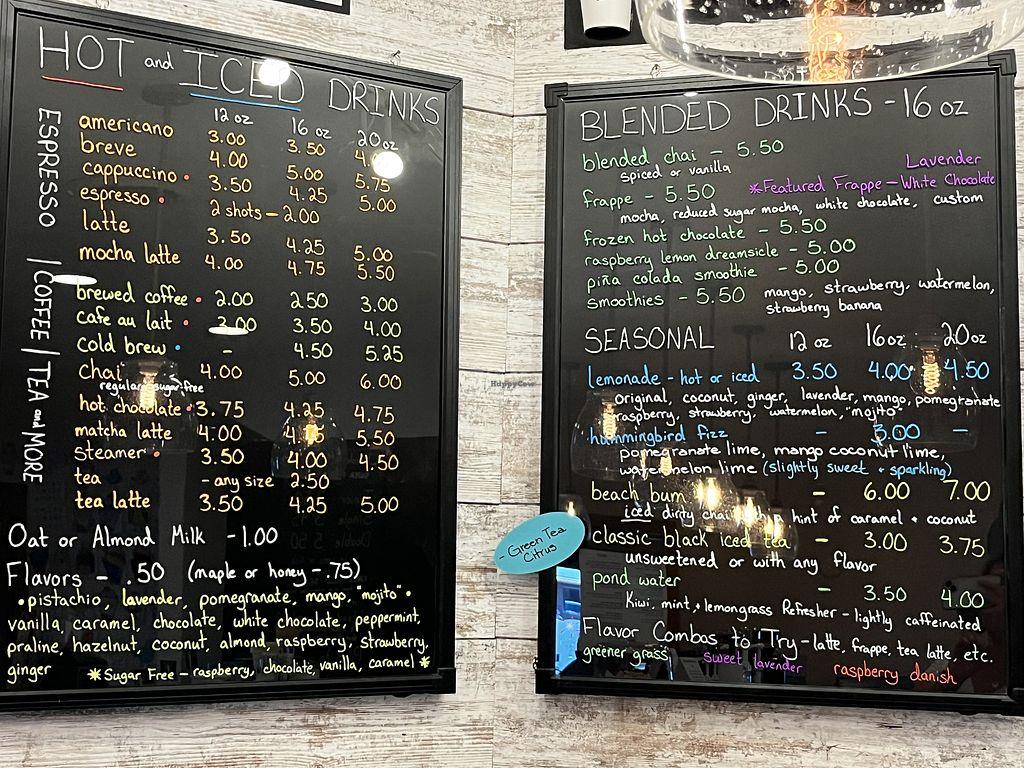 HOT and ICED DRINKS
ESPRESSO | COFFEE | TEA and MORE
12 oz 16 oz 20 oz
americano 3.00 3.50 4.
breve 4.00 5.00 5.75
cappuccino • 3.50 4.25 5.00
espresso • 2 shots - 2.00
latte 3.50 4.25 5.00
mocha latte 4.00 4.75 5.50
brewed coffee • 2.00 2.50 3.00
cafe au lait • 3.00 3.50 4.00
cold brew • - 4.50 5.25
chai 4.00 5.00 6.00
regular, sugar-free
hot chocolate • 3.75 4.25 4.75
matcha latte 4.00 5.50
steamer • 3.50 4.00 4.50
tea - any size 2.50
tea latte 3.50 4.25 5.00
Oat or Almond Milk - 1.00
Flavors - .50 (maple or honey - .75)
• pistachio, lavender, pomegranate, mango, "mojito" •
vanilla, caramel, chocolate, white chocolate, peppermint,
praline, hazelnut, coconut, almond, raspberry, strawberry,
ginger
* Sugar Free - raspberry, chocolate, vanilla, caramel *
BLENDED DRINKS - 16 oz
blended chai - 5.50
spiced or vanilla
Lavender
frappe - 5.50 * Featured Frappe - White Chocolate
mocha, reduced sugar mocha, white chocolate, custom
frozen hot chocolate - 5.50
raspberry lemon dreamsicle - 5.00
piña colada smoothie - 5.00
smoothies - 5.50 mango, strawberry, watermelon,
strawberry banana
SEASONAL 12 oz 16 oz 20 oz
lemonade - hot or iced 3.50 4.00 4.50
original, coconut, ginger, lavender, mango, pomegranate
raspberry, strawberry, watermelon, "mojito"
hummingbird fizz - 3.00 -
pomegranate lime, mango coconut lime,
watermelon lime (slightly sweet + sparkling)
beach bum - 6.00 7.00
iced dirty chai hint of caramel + coconut
classic black iced tea - 3.00 3.75
unsweetened or with any flavor
pond water - 3.50 4.00
Kiwi, mint, + lemongrass Refresher - lightly caffeinated
Flavor Combos to Try - latte, frappe, tea latte, etc.
greener grass sweet lavender raspberry danish
- Green Tea
Citrus
HappyCow